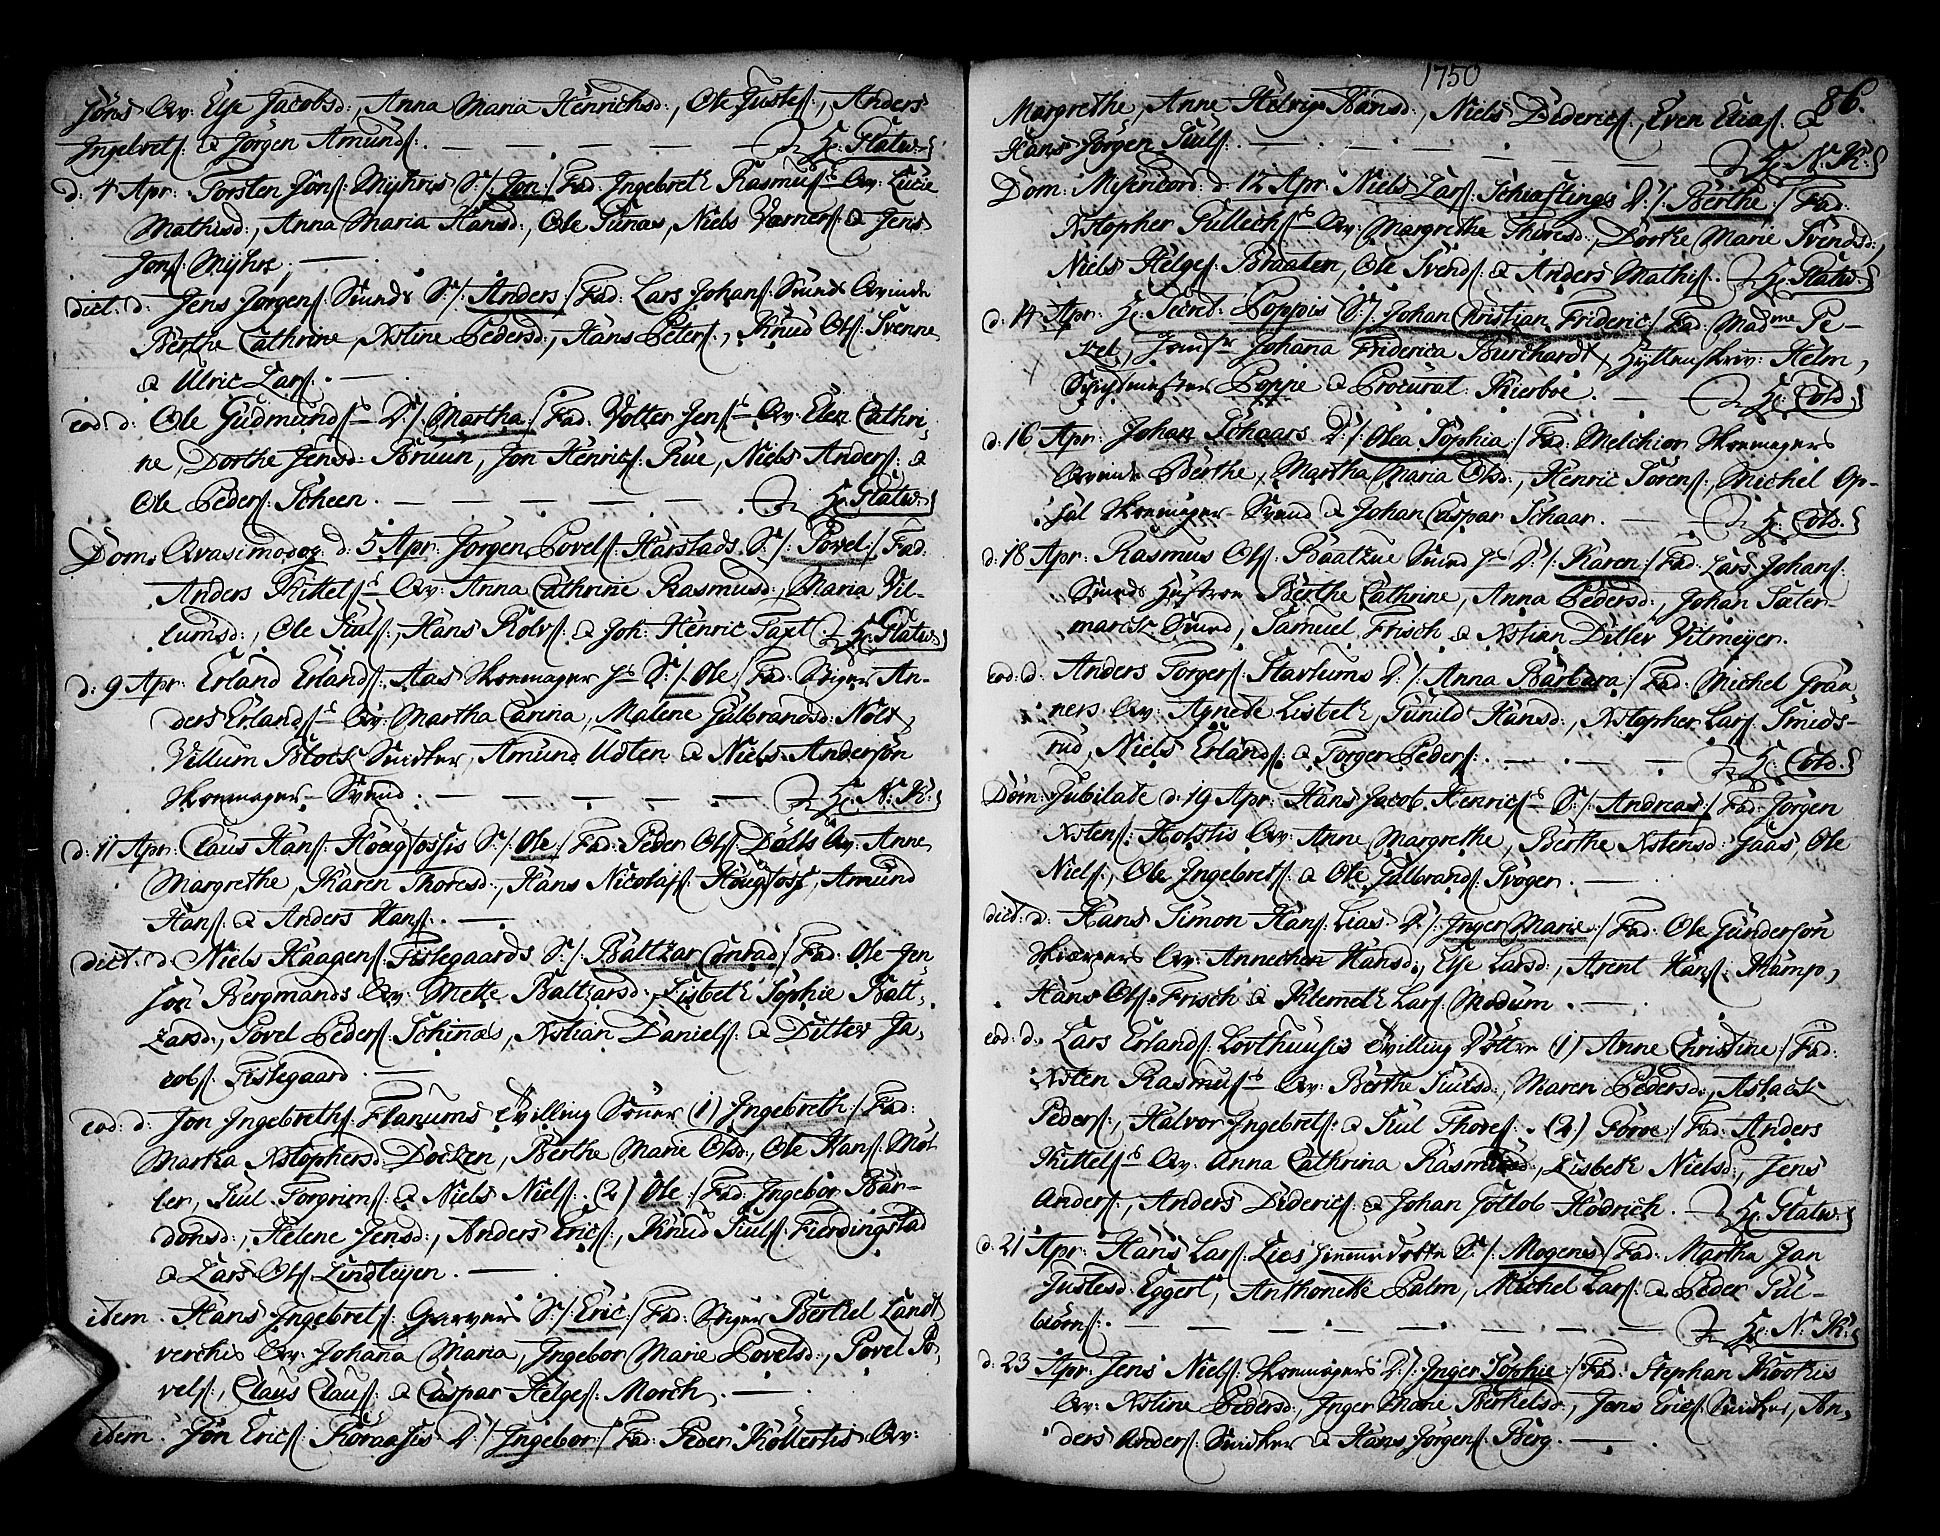 Jøns Qv: Else Jacobsd:, Anna Maria Henrichsd:, Ole Justes:, Anders
Ingebrets: & Jørgen Amunds:. — — — — — Hr. Statw:
d: 4 Apr: Torsten Jøns: Myhris S:/: Jon :/ Fad: Ingebreth Rasmuss: Qv: Lucie
Mathisd:, Anna Maria Hansd:, Ole Funas, Niels Værners: & Jens
Jons: Myhre. —
dict. d: Jens Jørgens: Svends S:/: Anders :/ Fad: Lars Johans: Svends Qvinde
Berthe Cathrine, Xstine Pedersd:, Hans Peters:, Knud Ols: Svenne
& Ulric Lars:. —
eod: d: Ole Gudmunds: D:/: Martha :/ Fad: Volter Jens: Qv: Elen Cathri-
ne, Dorthe Jensd: Bruun, Jon Henrics: Rue, Niels Anders: &
Ole Peders: Scheen. — — — — — Hr. Statw:
Dom. Qvasimodog: d: 5 Apr: Jørgen Povels: Harstads S:/: Povel :/ Fad:
Anders Kittels: Qv: Anna Cathrine Rasmusd:, Maria Vil-
lumsd:, Ole Juls:, Hans Rolvs: & Joh: Henric Taxt. Hr. Statw:
d: 9 Apr: Erland Erlands: Aas Skomager S:/: Ole :/ Fad: An-
ders Erlands: Qv: Martha Carina, Malene Gulbrandsd: Nolt,
Villum Block Snidker, Amund Udten & Niels Andersøn
Skomager-Svend. — — — — — Hr. N: K:
d: 11 Apr: Claus Hans: Hougsfossis S:/: Ole :/ Fad: Peder Ols: Dølls Qv: Anne
Margrethe, Karen Thoresd:, Hans Nicolajs: Hougfoss, Amund
Hans: & Anders Hans:. —
dict. d: Niels Haagens: Fislegaards S:/: Baltzar Conrad :/ Fad: Ole Jen-
søn Bergmands Qv: Mette Baltzarsd:, Lisbeth Sophie Balt-
zarsd:, Povel Peders: Schinæs, Xstian Daniels: & Ditlev Ja-
cobs: Fislegaard. —
eod: d: Jon Ingebreths: Flanums Tvilling Sønner (1) Ingebreth :/ Fad:
Martha Xstophersd: Døcken, Berthe Marie Olsd:, Ole Hans: Møl-
ler, Juul Torgrims: & Niels Niels:. (2) Ole :/ Fad: Ingebor Bar-
donsd:, Helene Jensd:, Anders Erics:, Knud Juuls: Fierdingstad
& Lars Ols: Lindleyen. —
idem. Hans Ingebrets: Garvers S:/: Eric :/ Fad: Berthel Landt
verchis Qv: Johana Maria, Ingebor Marie Povelsd:, Povel Po-
vels:, Claus Claus: & Caspar Helges: Morch. —
idem. Jøn Erics: Floraasis D:/: Ingebor :/ Fad: Peder Køllertis Qv:
1750
86.
Margrethe, Anne Helvig Hansd:, Niels Diderics:, Even Elias: &
Hans Jørgen Juls:. — — — — — Hr. N: K:
Dom: Misericord: d: 12 Apr: Niels Lars: Schiaftings D:/: Berthe :/ Fad:
Xstopher Tullechs: Qv: Margrethe Thoresd:, Dorthe Marie Svendsd:,
Niels Helges: Braaten, Ole Svends: & Anders Mathis:. Hr. Statw:
d: 14 Apr: Hr. Secret: Poppis S:/: Johan Christian Frideric :/ Fad: Madme Pe-
zel, Jomfr Johana Friderica Burchardt, Hyttenskriv: Helm,
Schichtmester Poppe & Procurat: Kierboe. — Hr. Cold.
d: 16 Apr: Johan Schaars D:/: Olea Sophia :/ Fad: Melchior Skomagers
Qvinde Berthe, Martha Maria Olsd:, Henric Sørens:, Michel Op-
sal Skomager Svend & Johan Caspar Schaar. — — Hr. Cold.
d: 18 Apr: Rasmus Ols: Baatzue Svend D:/: Karen :/ Fad: Lars Johans:
Svends Hustroe Berthe Cathrine, Anna Pedersd:, Johan Sæter-
marck Svend, Samuel Frisch & Xstian Ditlev Vitmeyer.
eod: d: Anders Torgers: Stavlums D:/: Anna Barbara :/ Fad: Michel Graa-
ners Qv: Agnete Lisbeth, Gunild Hansd:, Xstopher Lars: Smeds-
rud, Niels Erlands: & Torger Peders:. — — — Hr. Cold.
Dom: Jubilate d: 19 Apr: Hans Jacob Henrics: S:/: Andreas :/ Fad: Jørgen
Xstens: Holstis Qv: Anne Margrethe, Berthe Xstensd: Gaas, Ole
Niels:, Ole Ingebrets: & Ole Gulbrands: Svogen. —
dict. d: Hans Simon Hans: Liaes D:/: Inger Marie :/ Fad: Ole Gundersøn
Skiærpers Qv: Annechen Hansd:, Else Larsd:, Arent Hans: Kamp,
Hans Ols: Frisch & Klemeth Lars: Modum. —
eod: d. Lars Erlands: Lorthuusis Tvilling Døttre (1) Anne Christine :/ Fad:
Xsten Rasmus: Qv: Berthe Julsd:, Maren Pedersd:, Aslack
Peders:, Halvor Ingebrets: & Juul Thores:. (2) Torve :/ Fad: Anders
Kittels: Qv: Anna Cathrina Rasmusd:, Lisbeth Nielsd:, Jens
Anders:, Anders Diderics: & Johan Gotlob Hødrich. Hr. Statw:
d: 21 Apr: Hans Lars: Lies S:/: Mogenes :/ Fad: Martha Jan
Justesd: Eggert, Anthonette Palm, Michel Lars: & Peder Gul-
biørns:. — — — — — Hr. N: K:
d: 23 Apr: Jens Niels: Skomagers D:/: Inger Sophie :/ Fad: Stephan Kookis
Qv: Xstine Pedersd:, Inger Thore Berthelsd:, Jens Erics: Snidker, An-
ders Anders: Snidker & Hans Jørgens: Berg. —